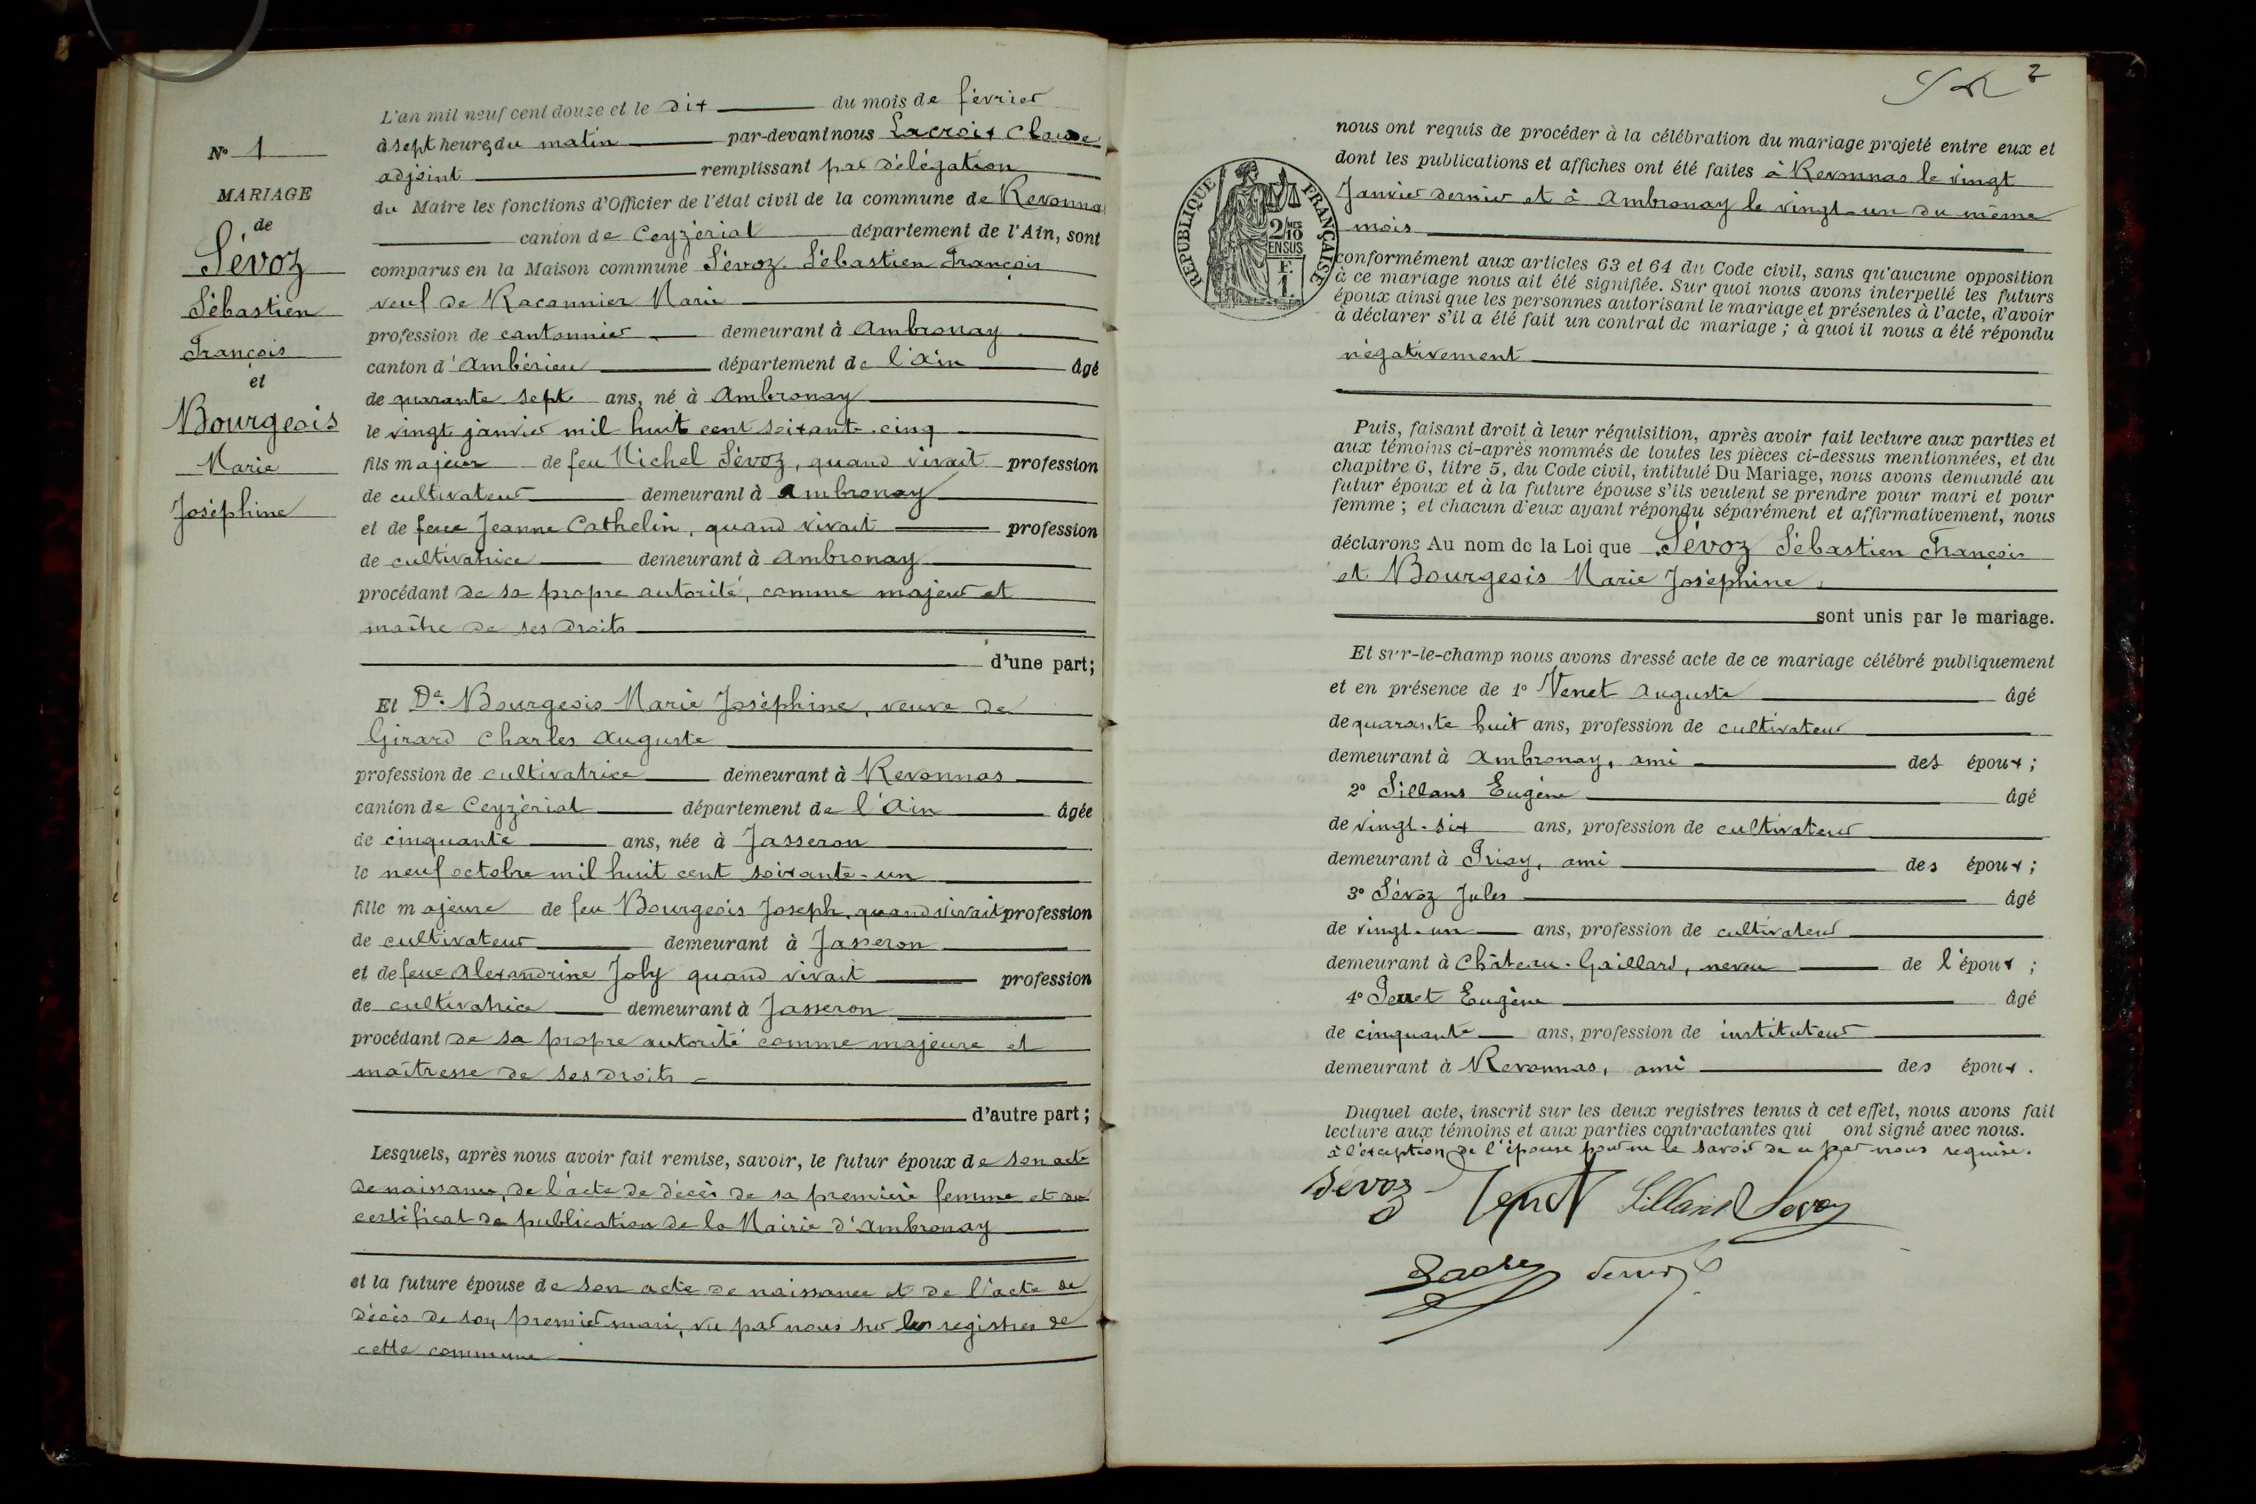 L'an mil neuf cent douze et le dix du mois de février
à sept heures du matin par-devant nous Lacroix Claude
adjoint remplissant par délégation
du Maire les fonctions d'Officier de l'état civil de la commune de Revonnas
canton de Ceyzériat département de l'Ain, sont
comparus en la Maison commune Sévoz Sébastien François
veuf de Racannier Marie
profession de cantonnier demeurant à Ambronay
canton d'Ambérieu département de l'Ain âgé
de quarante sept ans, né à Ambronay
le vingt janvier mil huit cent soixante-cinq
fils majeur de feu Michel Sévoz, quand vivait profession
de cultivateur demeurant à Ambronay
et de feue Jeanne Cathelin, quand vivait profession
de cultivatrice demeurant à Ambronay
procédant de sa propre autorité, comme majeur et
maître de ses droits
d'une part;
Et De. Bourgeois Marie Joséphine, veuve de
Girard Charles Auguste
profession de cultivatrice demeurant à Revonnas
canton de Ceyzériat département de l'Ain âgée
de cinquante ans, née à Jasseron
le neuf octobre mil huit cent soixante-un
fille majeure de feu Bourgeois Joseph, quand vivait profession
de cultivateur demeurant à Jasseron
et de feue Alexandrine Joly quand vivait profession
de cultivatrice demeurant à Jasseron
procédant de sa propre autorité comme majeure et
maîtresse de ses droits
d'autre part;
Lesquels, après nous avoir fait remise, savoir, le futur époux de son acte
de naissance, de l'acte de décès de sa première femme et du
certificat de publication de la Mairie d'Ambronay
et la future épouse de son acte de naissance et de l'acte de
décès de son premier mari, vu par nous sur les registres de
cette commune
N° 1
MARIAGE
de
Sévoz
Sébastien
François
et
Bourgeois
Marie
Joséphine
2
nous ont requis de procéder à la célébration du mariage projeté entre eux et
dont les publications et affiches ont été faites à Revonnas le vingt
Janvier dernier et à Ambronay le vingt-un du même
mois
RÉPUBLIQUE FRANÇAISE
2/10MES
EN SUS
F.
1.
conformément aux articles 63 et 64 du Code civil, sans qu'aucune opposition
à ce mariage nous ait été signifiée. Sur quoi nous avons interpellé les futurs
époux ainsi que les personnes autorisant le mariage et présentes à l'acte, d'avoir
à déclarer s'il a été fait un contrat de mariage ; à quoi il nous a été répondu
négativement
Puis, faisant droit à leur réquisition, après avoir fait lecture aux parties et
aux témoins ci-après nommés de toutes les pièces ci-dessus mentionnées, et du
chapitre 6, titre 5, du Code civil, intitulé Du Mariage, nous avons demandé au
futur époux et à la future épouse s'ils veulent se prendre pour mari et pour
femme ; et chacun d'eux ayant répondu séparément et affirmativement, nous
déclarons Au nom de la Loi que Sévoz Sébastien François
et Bourgeois Marie Joséphine,
sont unis par le mariage.
Et sur-le-champ nous avons dressé acte de ce mariage célébré publiquement
et en présence de 1° Venet Auguste âgé
de quarante huit ans, profession de cultivateur
demeurant à Ambronay, ami des époux ;
2° Sillans Eugène âgé
de vingt-six ans, profession de cultivateur
demeurant à Priay, ami des époux ;
3° Sévoz Jules âgé
de vingt-un ans, profession de cultivateur
demeurant à Château-Gaillard, neveu de l'époux ;
4° Eugène âgé
de cinquante ans, profession de instituteur
demeurant à Revonnas, ami des époux.
Duquel acte, inscrit sur les deux registres tenus à cet effet, nous avons fait
lecture aux témoins et aux parties contractantes qui ont signé avec nous.
à l'exception de l'épouse pour ne le savoir de ce par nous requise.
Sévoz Venet Sillans Sevoz